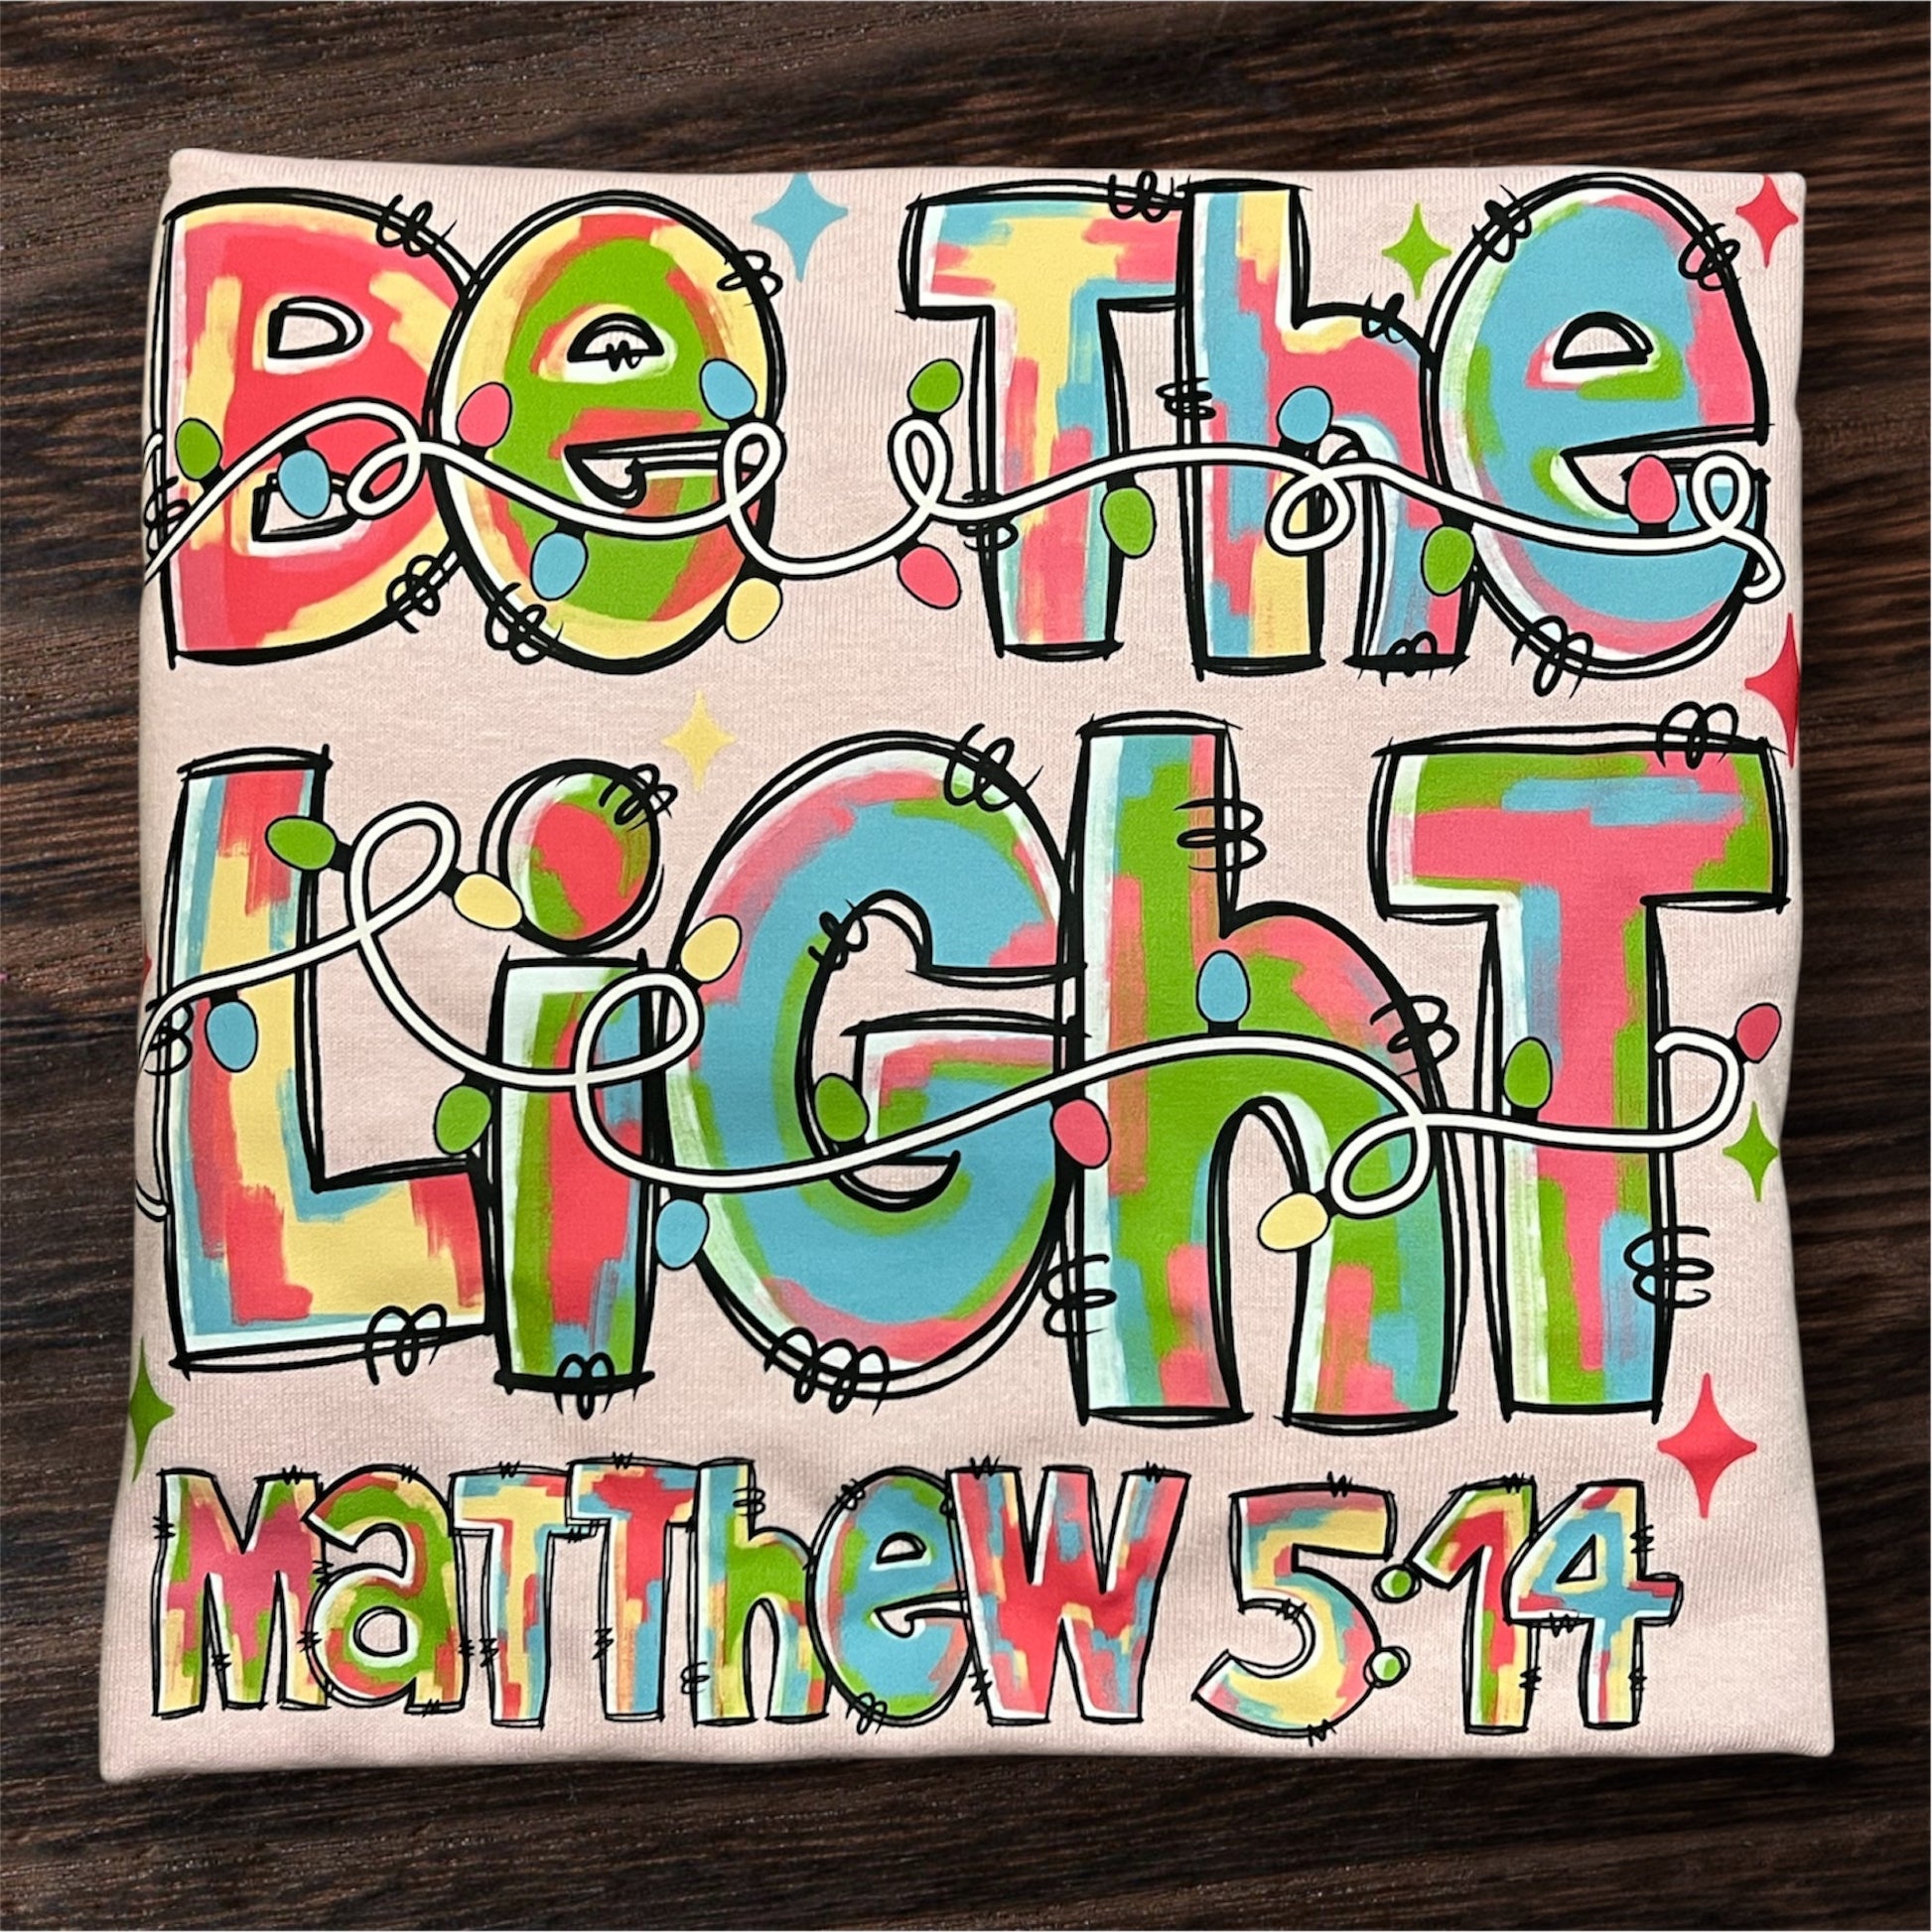 Be The
LiGhT
MaTTheW 5:14